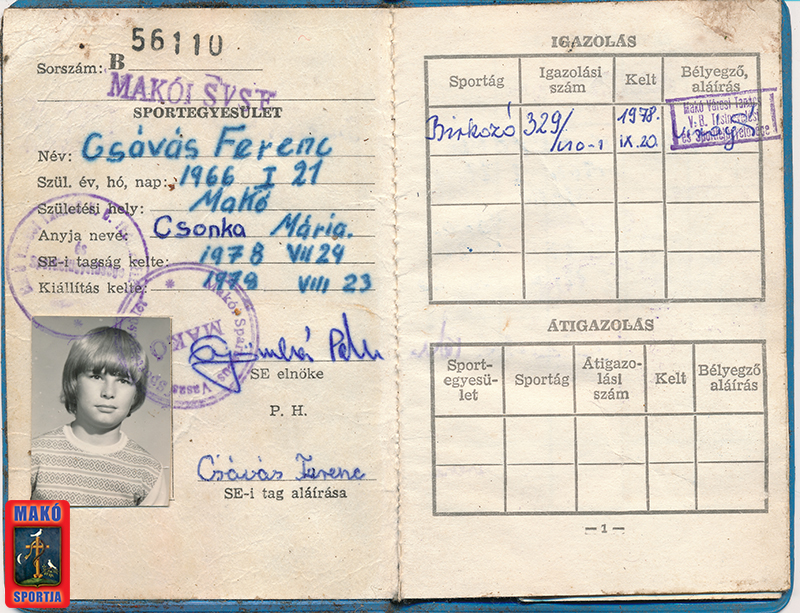 56110
Sorszám: B
MAKÓI SVSE
SPORTEGYESÜLET
Név: Csávás Ferenc
Szül. év, hó, nap: 1966 I 21
Születési hely: Makó
Anyja neve: Csonka Mária.
SE-i tagság kelte: 1978 VII 24
Kiállítás kelte: 1978 VIII 23
MAKÓ
SE elnöke
P. H.
Csávás Ferenc
SE-i tag aláírása
MAKÓ
SPORTJA
IGAZOLÁS
Sportág Igazolási szám Kelt Bélyegző, aláírás
Birkozó 329/ 1978. IX. 20.
Makó Városi Tanács
V. B. Testnevelési
és Sportfelügyelősége
ÁTIGAZOLÁS
Sport-egyesü-let Sportág Átigazo-lási szám Kelt Bélyegző aláírás
— 1 —